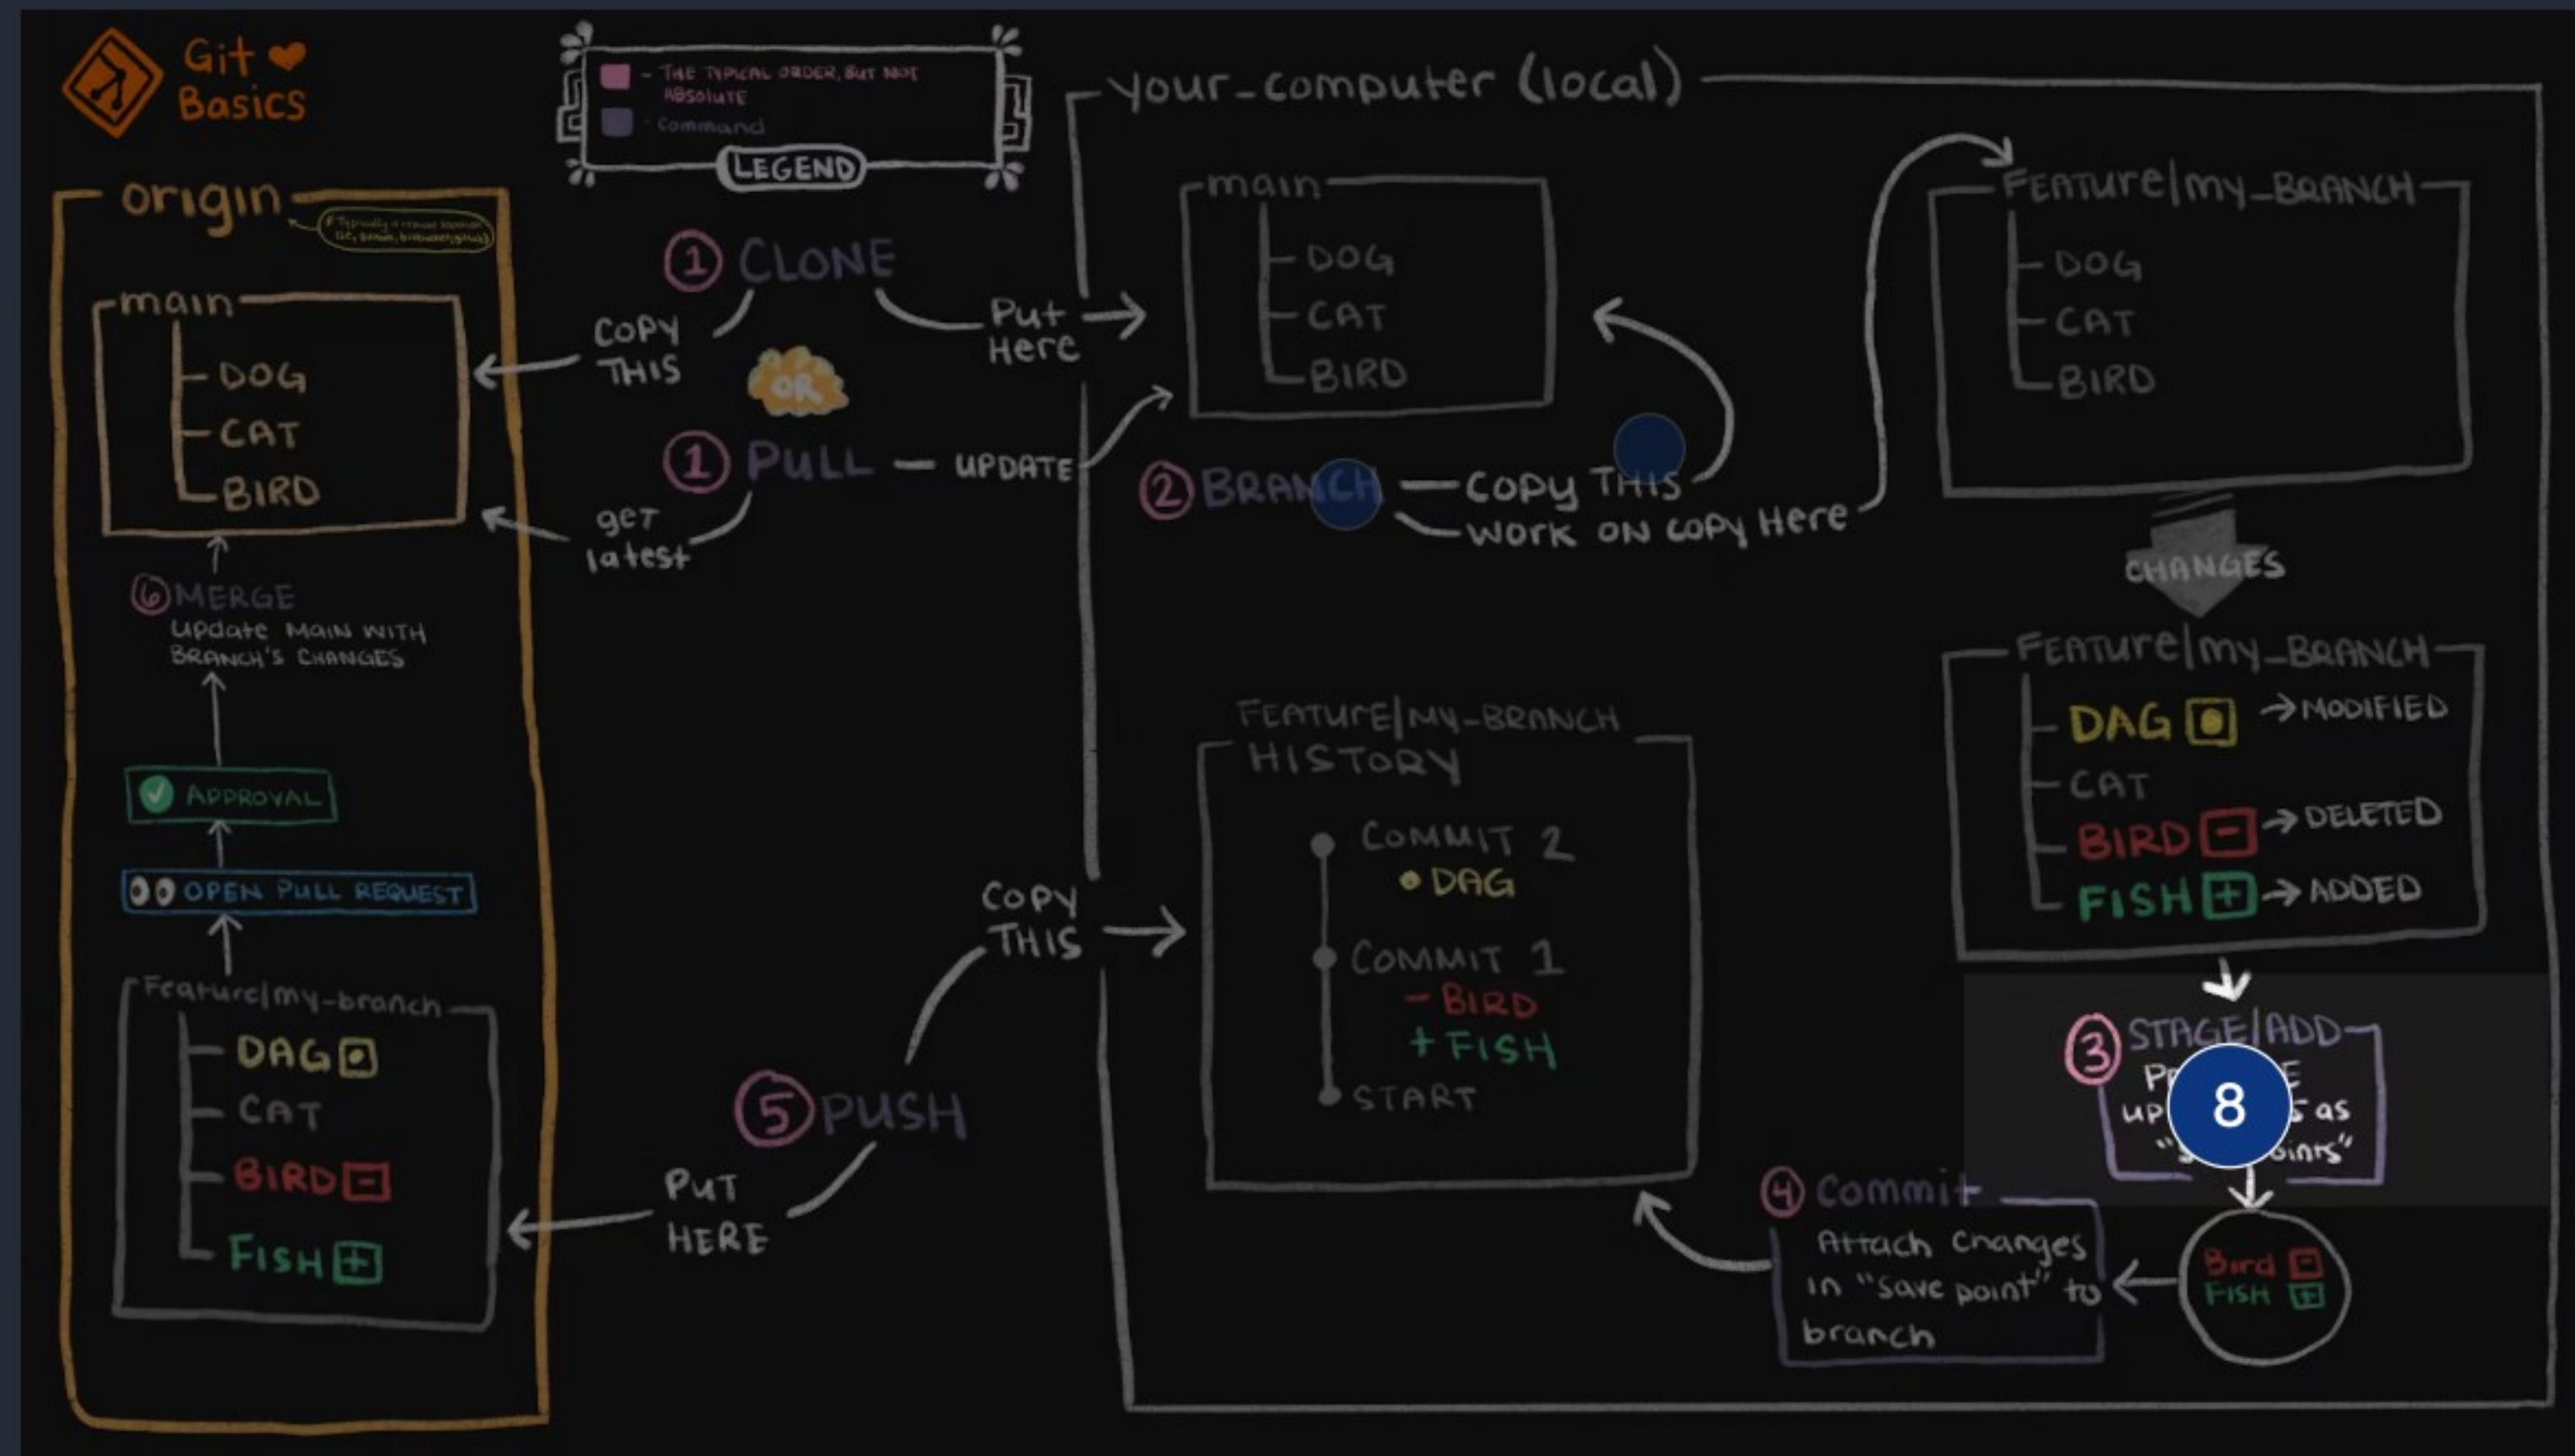 Git
Basics
- THE TYPICAL ORDER, BUT NOT
ABSOLUTE
- Command
LEGEND
origin
main
DOG
CAT
BIRD
6 MERGE
update MAIN WITH
BRANCH'S CHANGES
APPROVAL
OPEN PULL REQUEST
Feature/my-branch
DAG
CAT
BIRD -
FISH +
1 CLONE
COPY
THIS
Put
Here
OR
1 PULL — UPDATE
get
latest
COPY
THIS
5 PUSH
PUT
HERE
your_computer (local)
main
DOG
CAT
BIRD
2 BRANCH — COPY THIS
WORK ON COPY Here
FEATURE/my_BRANCH
DOG
CAT
BIRD
CHANGES
FEATURE/my_BRANCH
DAG → MODIFIED
CAT
BIRD - → DELETED
FISH + → ADDED
3 STAGE/ADD
8
as
Bird -
FISH +
4 Commit
Attach changes
in "save point" to
branch
FEATURE/MY-BRANCH
HISTORY
COMMIT 2
• DAG
COMMIT 1
- BIRD
+ FISH
START